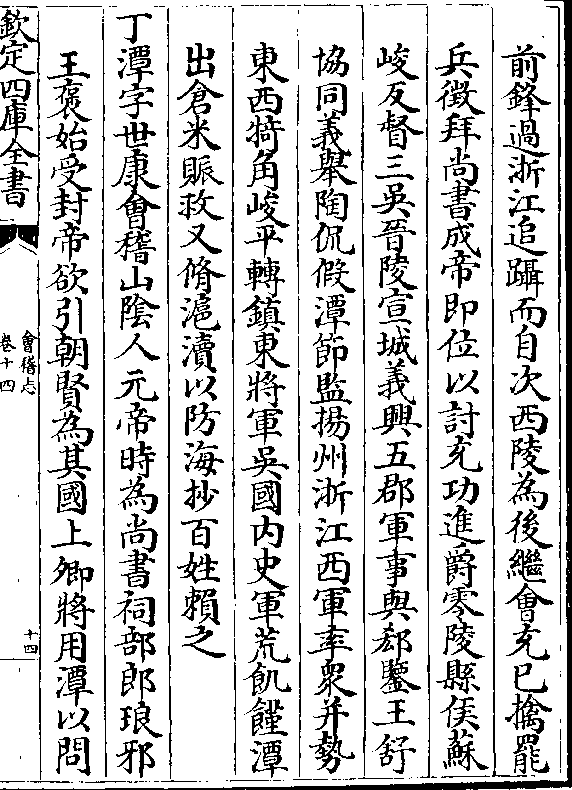 前鋒過浙江追躡而自次西陵為後繼會充已擒罷
兵徵拜尚書成帝即位以討充功進爵零陵縣侯蘇
峻反督三吳晉陵宣城義興五郡軍事與郄鑒王舒
協同義舉陶侃假潭節監揚州浙江西軍率衆并勢
東西犄角峻平轉鎮東將軍吳國内史軍荒飢饉潭
出倉米賑救又脩滬瀆以防海抄百姓賴之
丁潭字世康會稽山隂人元帝時為尚書祠部郎琅邪
王褒始受封帝欲引朝賢為其國上卿將用潭以問
欽定四庫全書
會稽志
卷十四
十四